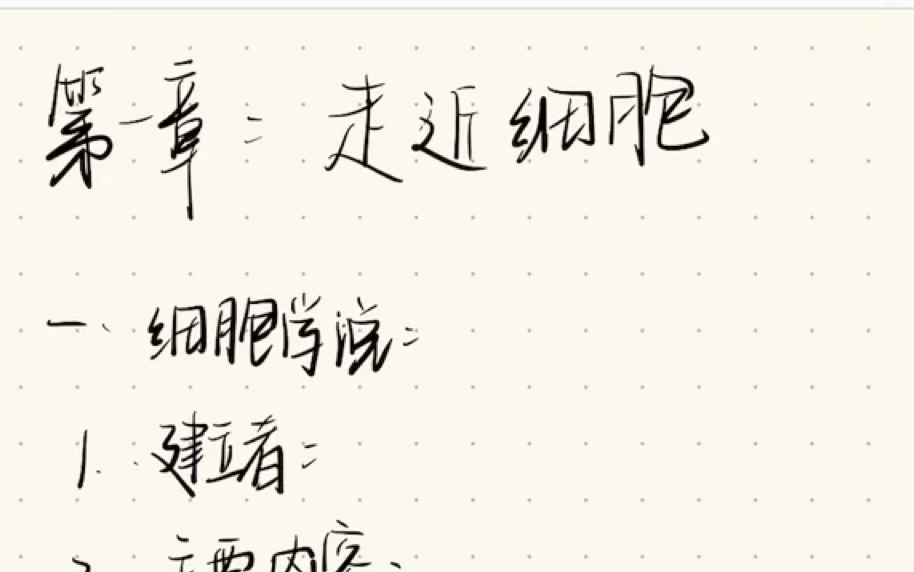 第一章：走近细胞
一、细胞学说：
1. 建立者：
2. 主要内容：